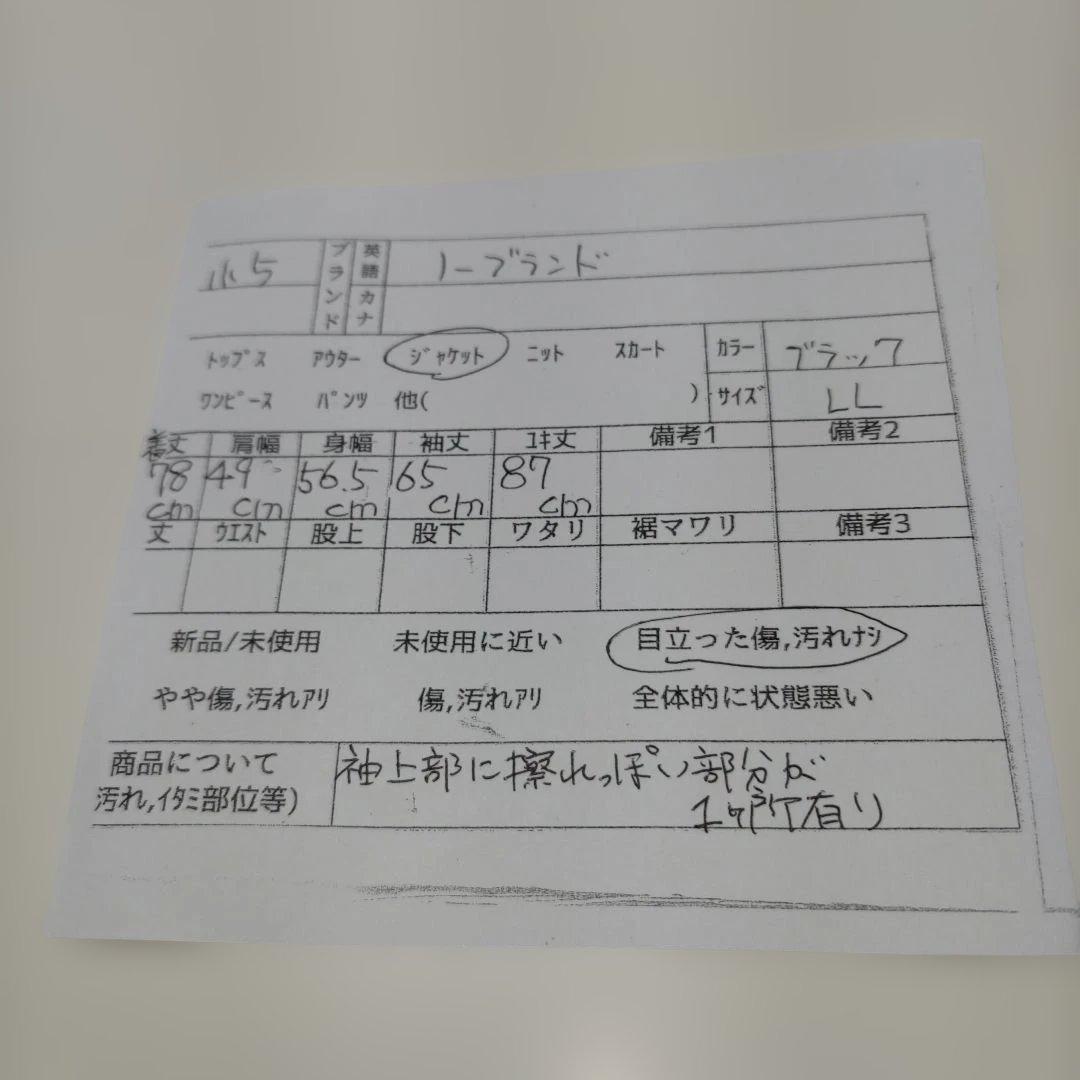 ブランド 英語 ノーブランド
カナ
トップス アウター ジャケット ニット スカート カラー ブラック
ワンピース パンツ 他( ) サイズ LL
着丈 肩幅 身幅 袖丈 ユキ丈 備考1 備考2
78cm 49cm 56.5cm 65cm 87cm
丈 ウエスト 股上 股下 ワタリ 裾マワリ 備考3
新品/未使用 未使用に近い 目立った傷,汚れナシ
やや傷,汚れアリ 傷,汚れアリ 全体的に状態悪い
商品について 袖上部に擦れっぽい部分が
汚れ,イタミ部位等) 1ヶ所有り